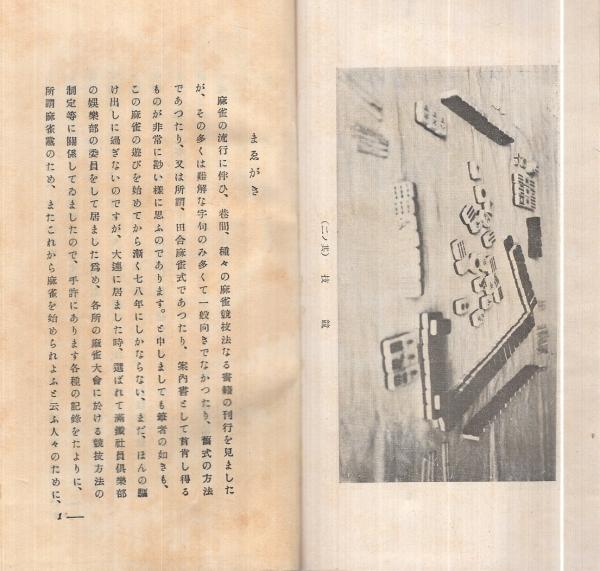 競技 (其ノ二)
まゑがき
麻雀の流行に伴ひ、巷間、種々の麻雀競技法なる書籍の刊行を見ました
が、その多くは難解な字句のみ多くて一般向きでなかつたり、舊式の方法
であつたり、又は所謂、田合麻雀式であつたり、案內書として首肯し得る
ものが非常に尠い樣に思ふのであります。と申しましても筆者の如きも、
この麻雀の遊びを始めてから漸く七八年にしかならない、まだ、ほんの驅
け出しに過ぎないのですが、大連に居ました時、選ばれて滿鐵社員俱樂部
の娛樂部の委員をして居ました爲め、各所の麻雀大會に於ける競技方法の
制定等に關係してゐましたので、手許にあります各種の記錄をたよりに、
所謂麻雀黨のため、またこれから麻雀を始められよふと云ふ人々のために、
1